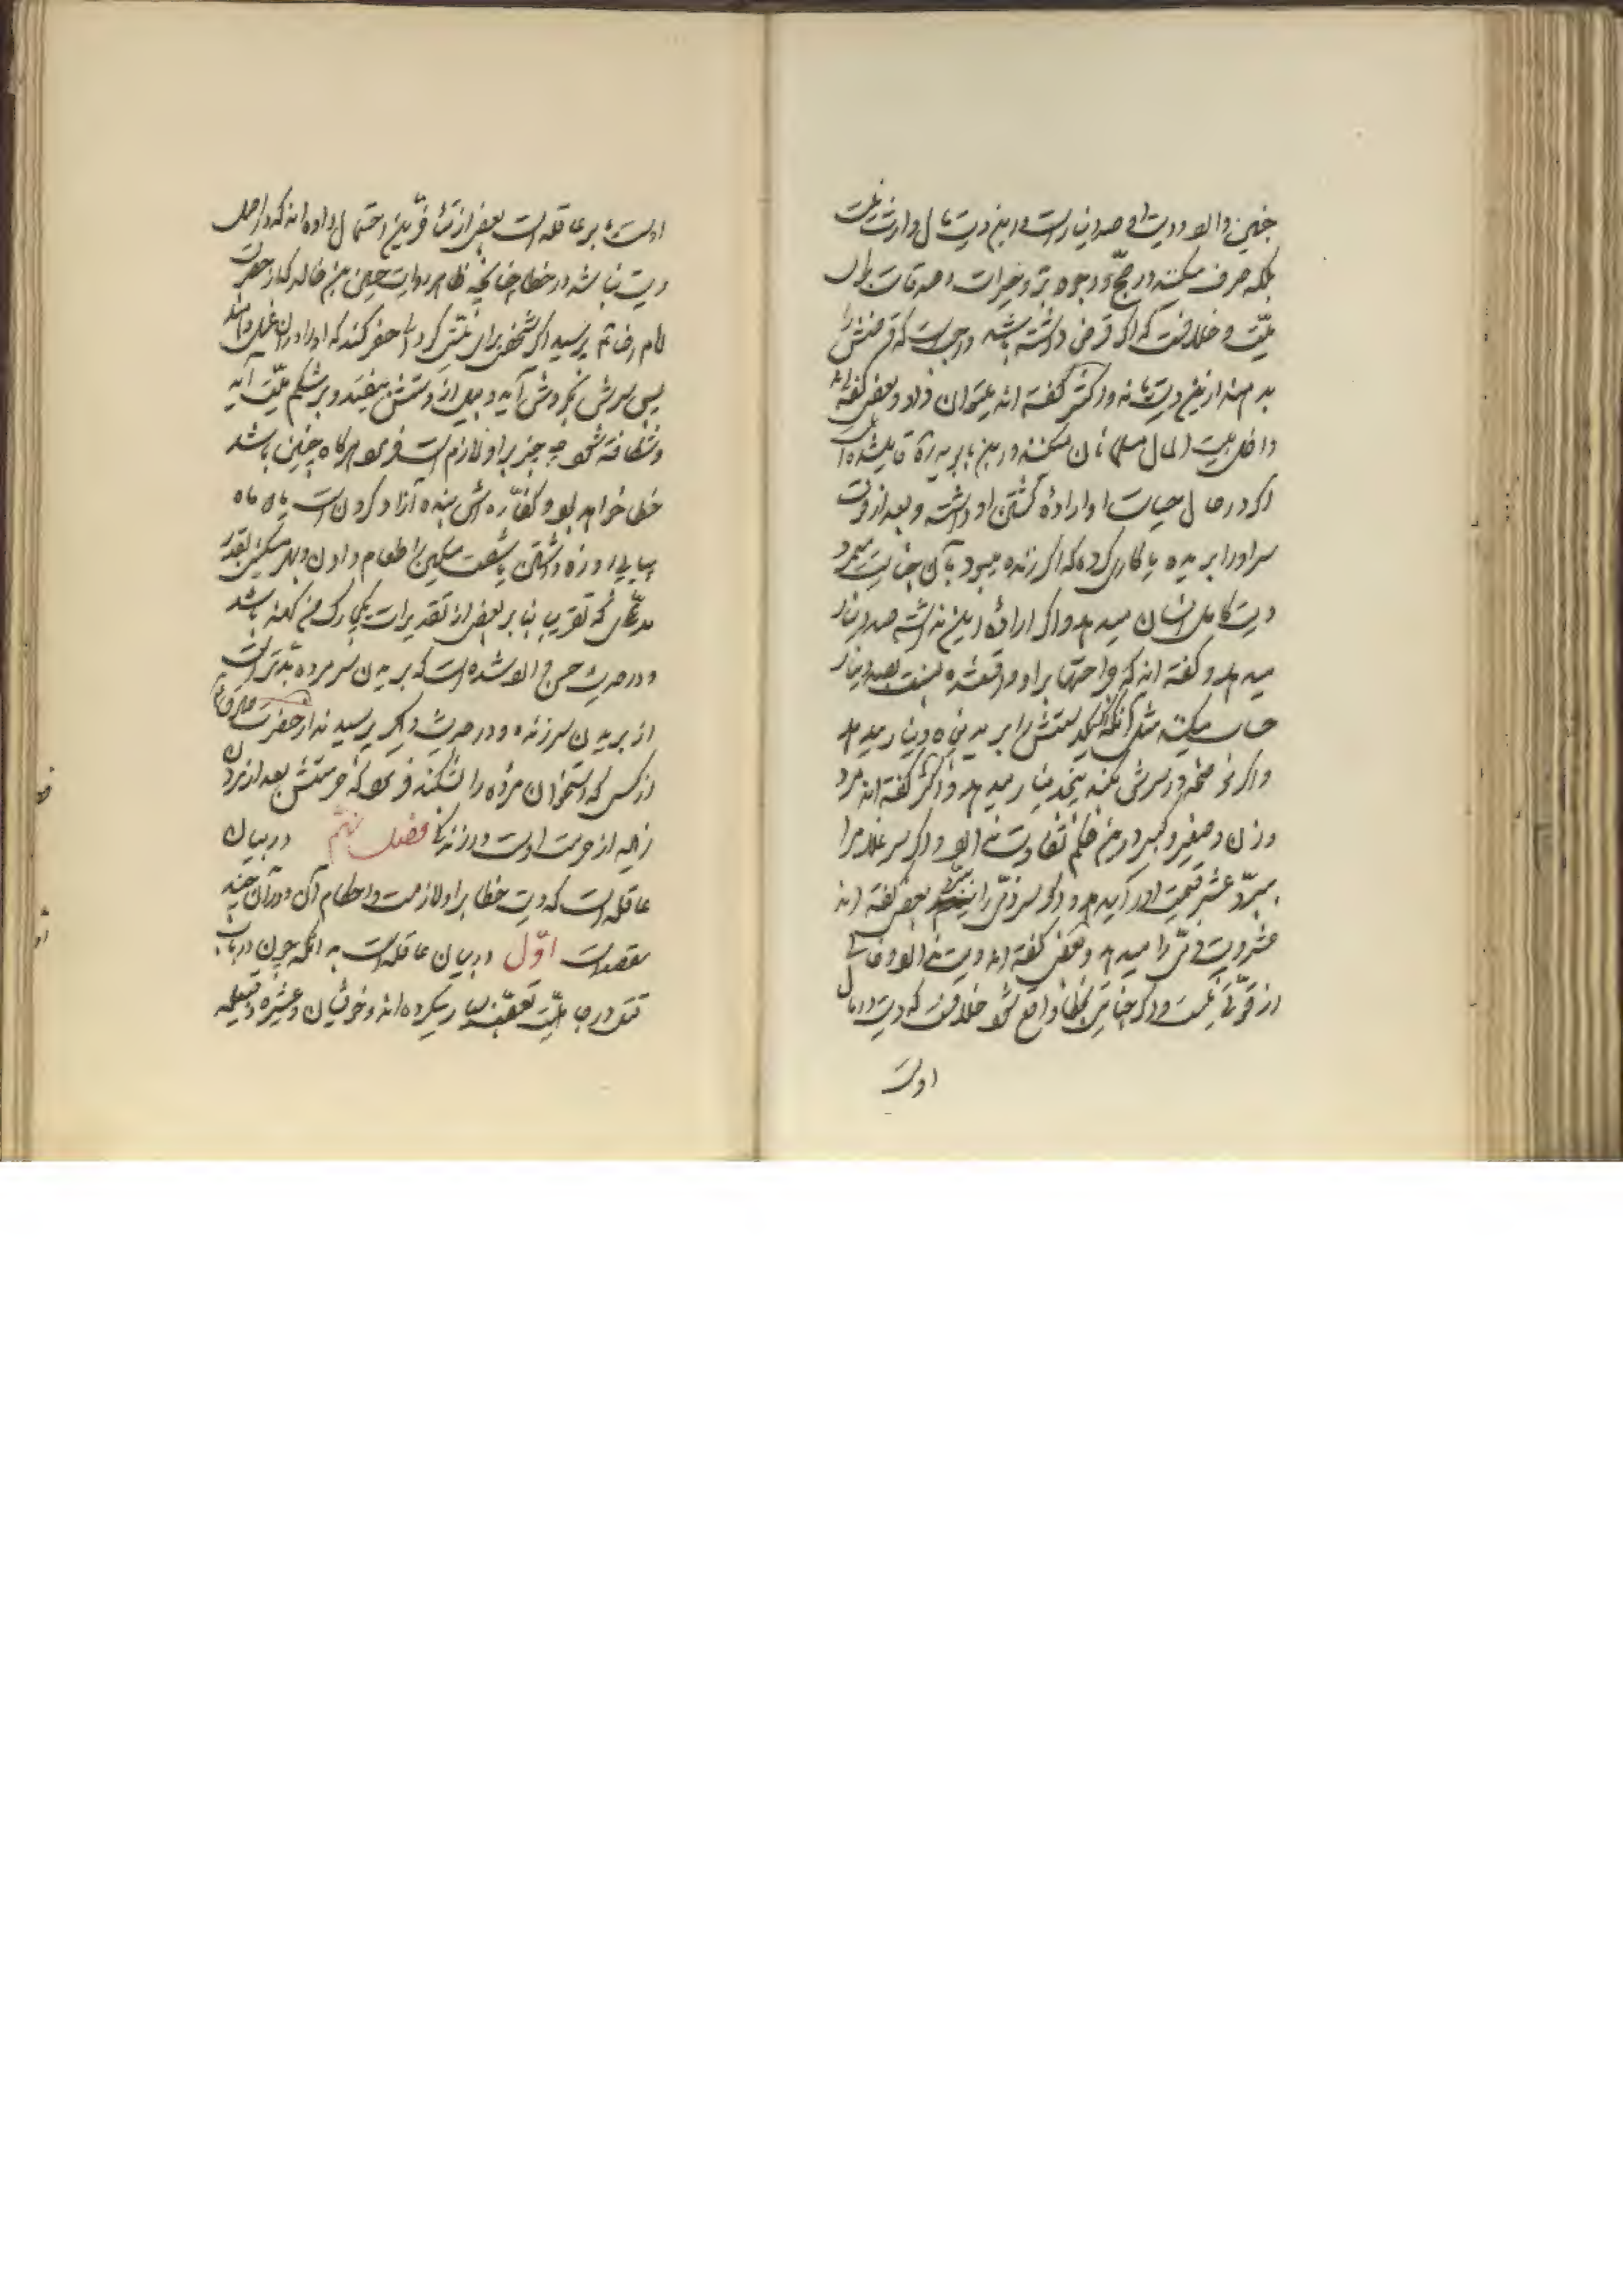 جنین دارد و دیت او صد دینار است و این دیت مال وارث نیست
بلکه صرف میکنند در حج و وجوه بر و خیرات و صدقات برای
میّت و خلافست که اگر قرض داشته باشد واجبست که قرضش را
بدهند ازین دیت یا نه و اکثر گفته اند میتوان داد و بعضی گفته اند
داخل بیت المال مسلمانان میکنند و در بین بابریدن
اگر در حال حیات او اراده کشتن او داشته و بعد از فوت
سر او را بریده یا کاری کرده که اگر زنده میبود بآن جنایت میمرد
دیت کامل انسان میدهد و اگر اراده این نداشته صد دینار
میدهد و گفته اند که جراحتها بر او واقع شده بنسبت بصد دینار
حساب میکنند مثل آنکه اگر یکدستش را ببرد پنجاه دینار میدهد
و اگر در سرش بکند پنجدینار میدهد و اکثر گفته اند مرد
و زن و صغیر و کبیر درین حکم تفاوت ندارد و اگر سر غلام را
ببرّد عشر قیمت او را میدهد و اگر سر ذمّی را ببرّد بعضی گفته اند
عشر دیت ذمّی را میدهد و بعضی گفته اند دیت ندارد و خالی
از قوّتی نیست و اگر جنایت بخطا واقع شود خلافست که دیت در مال
اوست
اوست یا بر عاقله است بعضی از متأخّرین احتمال داده اند که در اصل
دیت نباشد در خطا چنانچه ظاهر روایت حسین بن خالد که از حضرت
امام رضا ع پرسید اگر شخصی برای میّتی گودالی حفر کند که او را در آن غسل دهند
پس سرش بگردش آید و بیل از دستش بیفتد و بر شکم میّت آید
و شکافته شود چه چیز بر او لازم است فرمود هرگاه چنین باشد
خطا خواهد بود و کفّاره اش بنده آزاد کردن است یا دو ماه
پیاپی روزه داشتن یا شصت مسکین را طعام دادن و بهر مسکینی بقدر
مدّی که تقریبا بنا بر بعضی از تقدیرات یکچارک من کهنه باشد
و در حدیث حسن وارد شده است که بریدن سر مرده بدتر است
از بریدن سر زنده و در حدیث دیگر پرسیدند از حضرت صادق ع
از کسی که استخوان مرده را بشکند فرمود که حرمتش بعد از مردن
زیاده از حرمت اوست در زندگی فصل نهم در بیان
عاقله است که دیت خطا بر او لازمست و احکام آن و در آن چند
مقصد است اوّل در بیان عاقله است بدانکه چون در باب
قتل در جاهلیّت تعصّب بسیار میکرده اند و خویشان و عشیره و قبیله